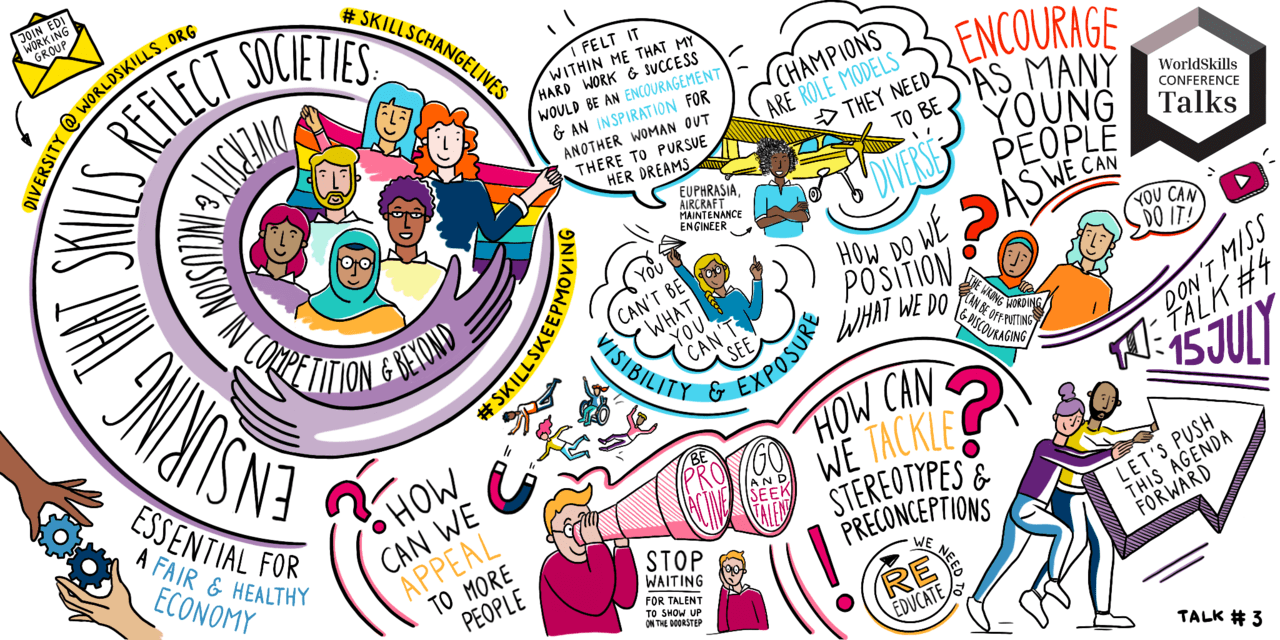 JOIN EDI
WORKING
GROUP
DIVERSITY @ WORLDSKILLS.ORG
# SKILLSCHANGELIVES
ENSURING THAT SKILLS REFLECT SOCIETIES:
DIVERSITY & INCLUSION IN COMPETITION & BEYOND
#SKILLSKEEPMOVING
ESSENTIAL FOR
A FAIR & HEALTHY
ECONOMY
I FELT IT
WITHIN ME THAT MY
HARD WORK & SUCCESS
WOULD BE AN ENCOURAGEMENT
& AN INSPIRATION FOR
ANOTHER WOMAN OUT
THERE TO PURSUE
HER DREAMS
EUPHRASIA,
AIRCRAFT
MAINTENANCE
ENGINEER
CHAMPIONS
ARE ROLE MODELS
THEY NEED
TO BE
DIVERSE
YOU
CAN'T BE
WHAT
YOU
CAN'T
SEE
VISIBILITY & EXPOSURE
HOW DO WE
POSITION
WHAT WE DO
?
ENCOURAGE
AS MANY
YOUNG
PEOPLE
AS WE CAN
YOU CAN
DO IT!
THE WRONG WORDING
CAN BE OFF-PUTTING
& DISCOURAGING
WorldSkills
CONFERENCE
Talks
DON'T MISS
TALK #4
15 JULY
?
HOW
CAN WE
APPEAL
TO MORE
PEOPLE
BE
PRO
ACTIVE
GO
AND
SEEK
TALENT
STOP
WAITING
FOR TALENT
TO SHOW UP
ON THE DOORSTEP
HOW CAN
WE TACKLE
STEREOTYPES &
PRECONCEPTIONS
?
!
WE NEED TO
RE
EDUCATE
LET'S PUSH
THIS AGENDA
FORWARD
TALK # 3